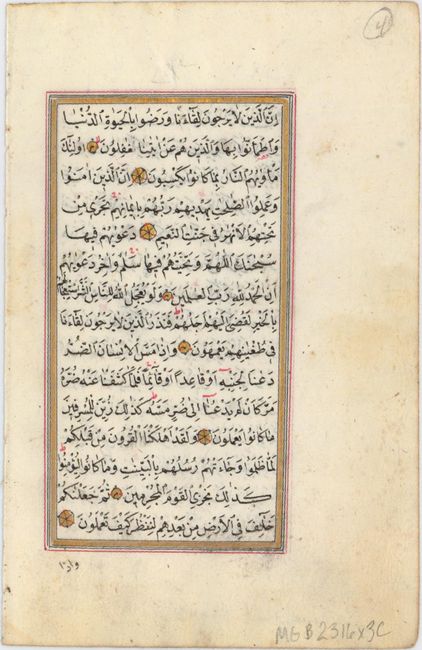 4
ان الذين لا يرجون لقاءنا ورضوا بالحيوة الدنيا
واطمانوا بها والذين هم عن ايتنا غفلون اولئك
ماويهم النار بما كانوا يكسبون ان الذين امنوا
وعملوا الصلحت يهديهم ربهم بايمانهم تجرى من
تحتهم الانهر فى جنت النعيم دعويهم فيها
سبحنك اللهم وتحيتهم فيها سلم واخر دعويهم
ان الحمد لله رب العلمين ولو يعجل الله للناس الشر استعجالهم
بالخير لقضى اليهم اجلهم فنذر الذين لا يرجون لقاءنا
فى طغينهم يعمهون واذا مس الانسان الضر
دعانا لجنبه او قاعدا او قائما فلما كشفنا عنه ضره
مر كان لم يدعنا الى ضر مسه كذلك زين للمسرفين
ما كانوا يعملون ولقد اهلكنا القرون من قبلكم
لما ظلموا وجاءتهم رسلهم بالبينت وما كانوا ليؤمنوا
كذلك نجزى القوم المجرمين ثم جعلنكم
خلئف فى الارض من بعدهم لننظر كيف تعملون
واذا
MGB2316x3C